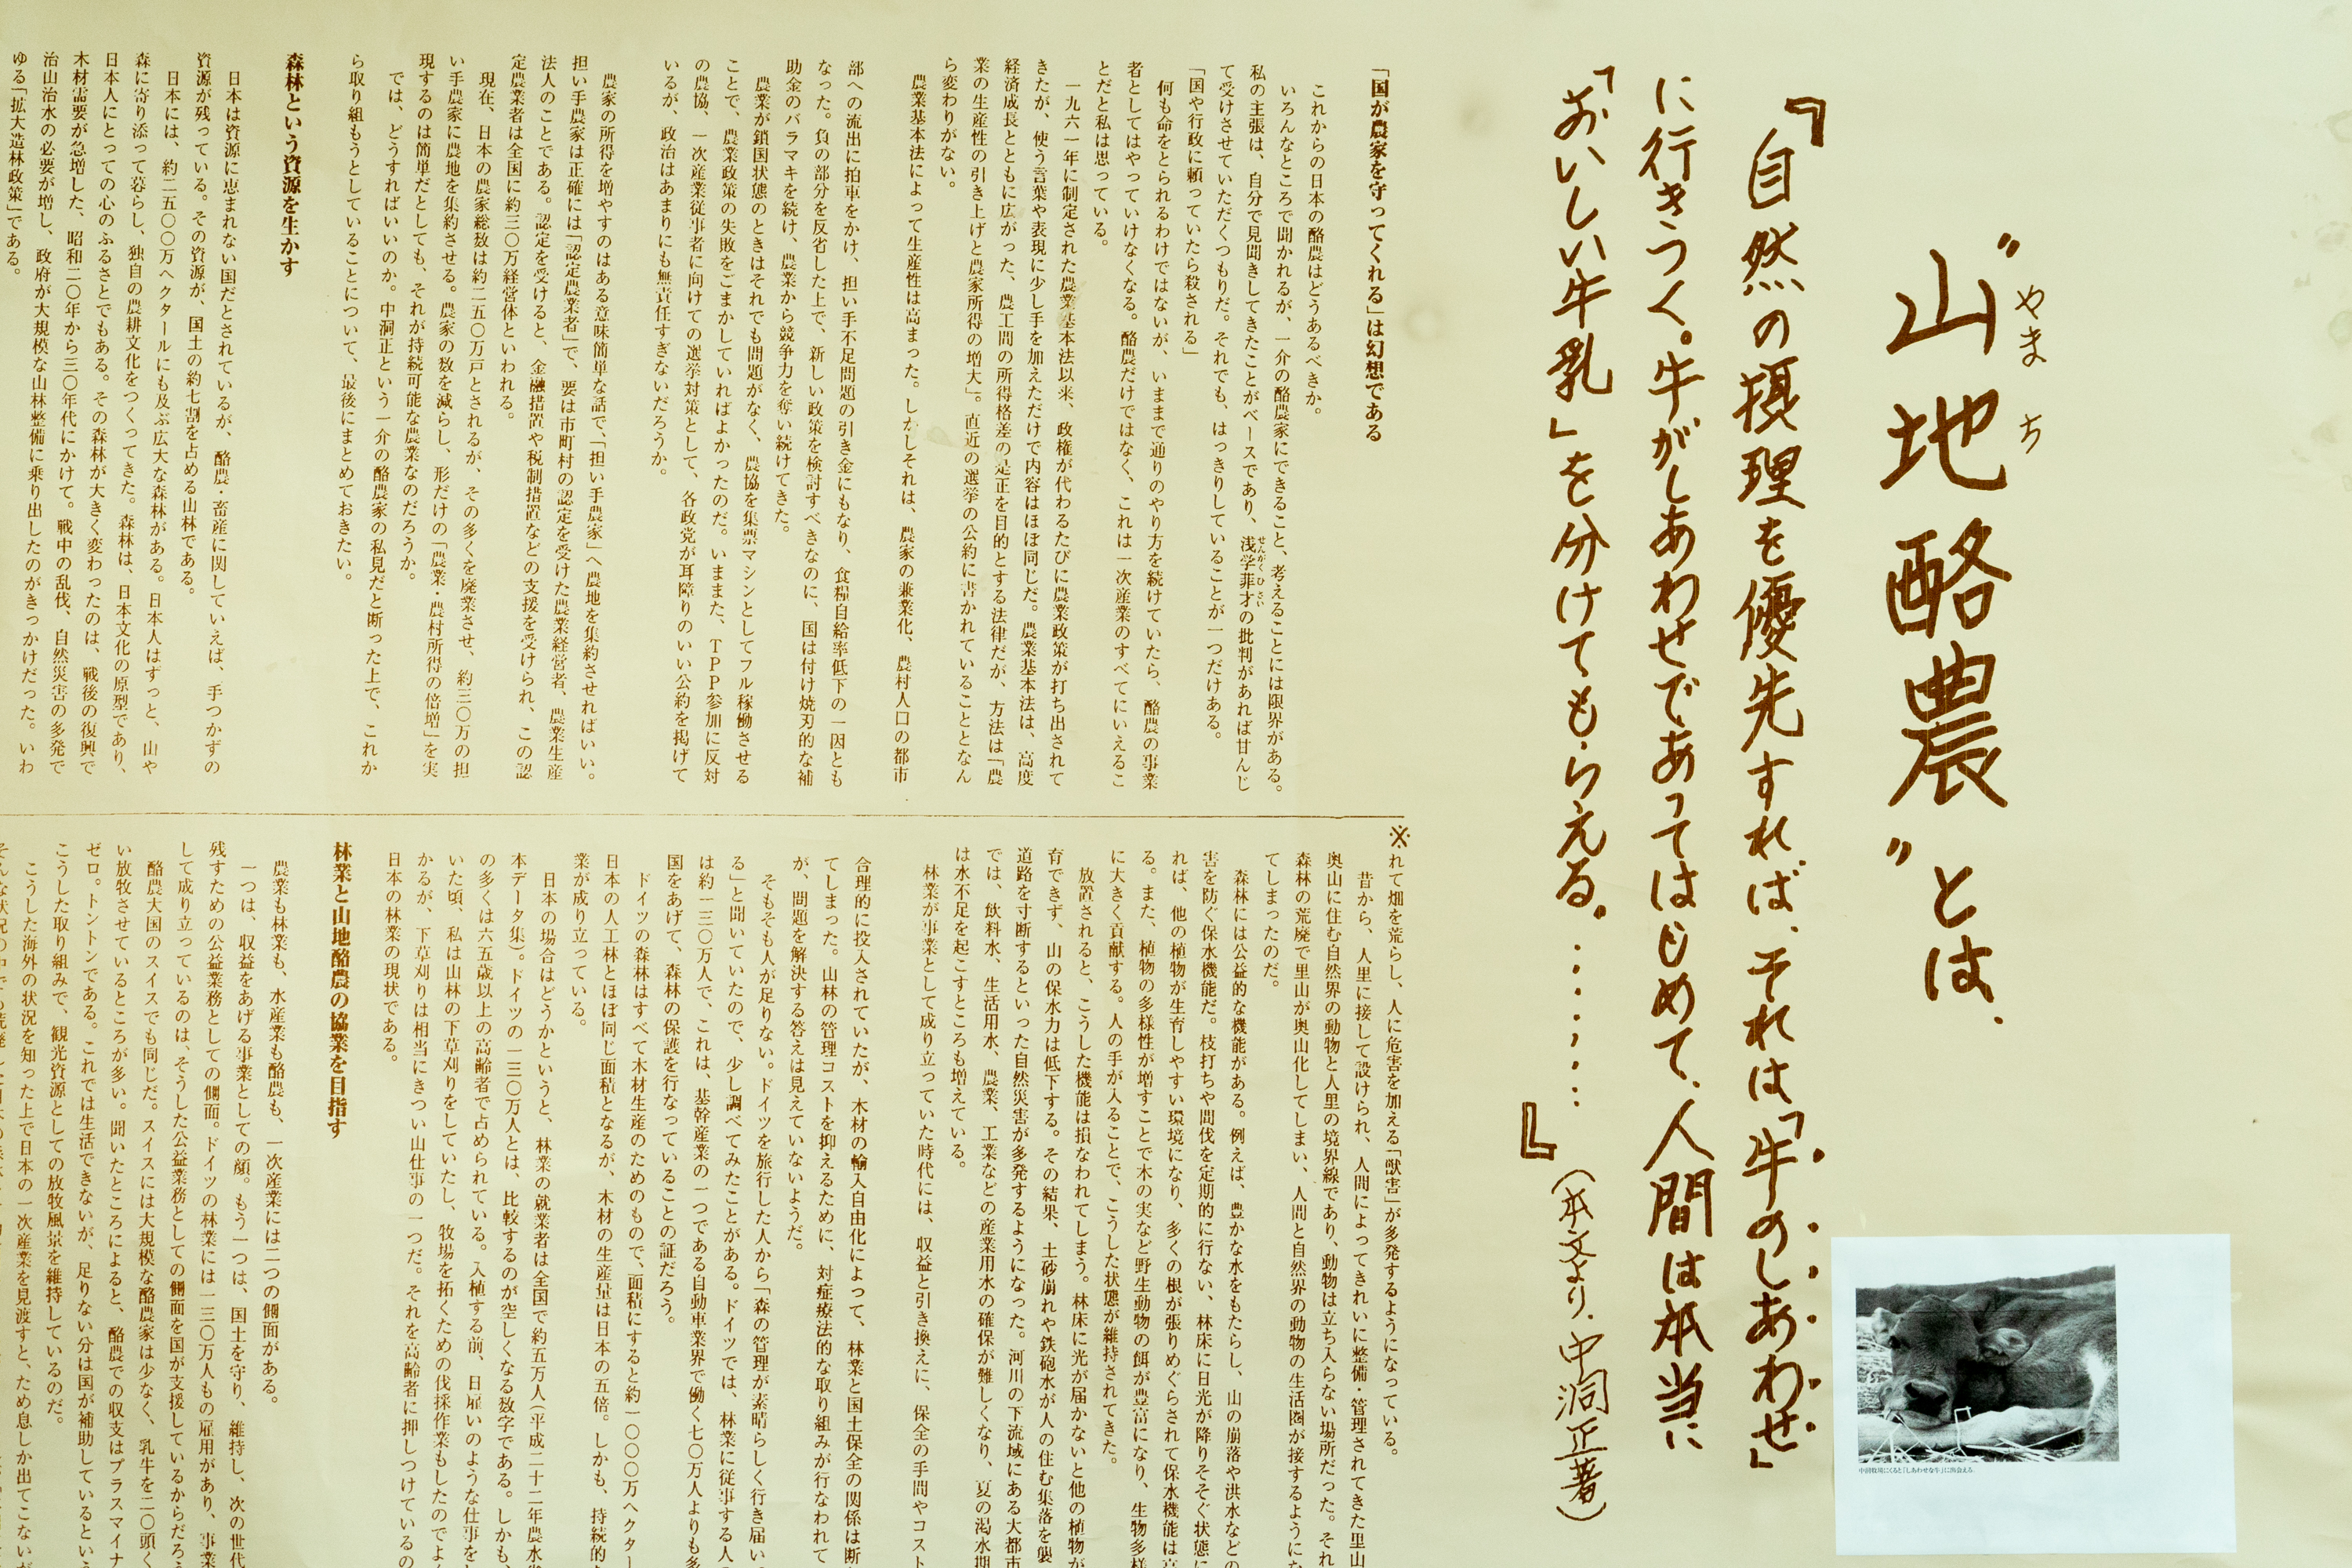 ”山地酪農”とは、
やまち
『自然の摂理を優先すれば、それは「牛のしあわせ」
に行きつく。牛がしあわせであってはじめて、人間は本当に
「おいしい牛乳」を分けてもらえる。………』
(本文より、中洞正著)
中洞牧場にくると「しあわせな牛」に出会える
「国が農家を守ってくれる」は幻想である
これからの日本の酪農はどうあるべきか。
いろんなところで聞かれるが、一介の酪農家にできること、考えることには限界がある。
私の主張は、自分で見聞きしてきたことがベースであり、浅学菲才の批判があれば甘んじ
せんがくひさい
て受けさせていただくつもりだ。それでも、はっきりしていることが一つだけある。
「国や行政に頼っていたら殺される」
何も命をとられるわけではないが、いままで通りのやり方を続けていたら、酪農の事業
者としてはやっていけなくなる。酪農だけではなく、これは一次産業のすべてにいえるこ
とだと私は思っている。
一九六一年に制定された農業基本法以来、政権が代わるたびに農業政策が打ち出されて
きたが、使う言葉や表現に少し手を加えただけで内容はほぼ同じだ。農業基本法は、高度
経済成長とともに広がった、農工間の所得格差の是正を目的とする法律だが、方法は「農
業の生産性の引き上げと農家所得の増大」。直近の選挙の公約に書かれていることとなん
ら変わりがない。
農業基本法によって生産性は高まった。しかしそれは、農家の兼業化、農村人口の都市
部への流出に拍車をかけ、担い手不足問題の引き金にもなり、食糧自給率低下の一因とも
なった。負の部分を反省した上で、新しい政策を検討すべきなのに、国は付け焼刃的な補
助金のバラマキを続け、農業から競争力を奪い続けてきた。
農業が鎖国状態のときはそれでも問題がなく、農協を集票マシンとしてフル稼働させる
ことで、農業政策の失敗をごまかしていればよかったのだ。いままた、TPP参加に反対
の農協、一次産業従事者に向けての選挙対策として、各政党が耳障りのいい公約を掲げて
いるが、政治はあまりにも無責任すぎないだろうか。
農家の所得を増やすのはある意味簡単な話で、「担い手農家」へ農地を集約させればいい。
担い手農家は正確には「認定農業者」で、要は市町村の認定を受けた農業経営者、農業生産
法人のことである。認定を受けると、金融措置や税制措置などの支援を受けられ、この認
定農業者は全国に約三〇万経営体といわれる。
現在、日本の農家総数は約二五〇万戸とされるが、その多くを廃業させ、約三〇万の担
い手農家に農地を集約させる。農家の数を減らし、形だけの「農業・農村所得の倍増」を実
現するのは簡単だとしても、それが持続可能な農業なのだろうか。
では、どうすればいいのか。中洞正という一介の酪農家の私見だと断った上で、これか
ら取り組もうとしていることについて、最後にまとめておきたい。
森林という資源を生かす
日本は資源に恵まれない国だとされているが、酪農・畜産に関していえば、手つかずの
資源が残っている。その資源が、国土の約七割を占める山林である。
日本には、約二五〇〇万ヘクタールにも及ぶ広大な森林がある。日本人はずっと、山や
森に寄り添って暮らし、独自の農耕文化をつくってきた。森林は、日本文化の原型であり、
日本人にとっての心のふるさとでもある。その森林が大きく変わったのは、戦後の復興で
木材需要が急増した、昭和二〇年から三〇年代にかけて。戦中の乱伐、自然災害の多発で
治山治水の必要が増し、政府が大規模な山林整備に乗り出したのがきっかけだった。いわ
ゆる「拡大造林政策」である。
※れて畑を荒らし、人に危害を加える「獣害」が多発するようになっている。
昔から、人里に接して設けられ、人間によってきれいに整備・管理されてきた里山
奥山に住む自然界の動物と人里の境界線であり、動物は立ち入らない場所だった。それ
森林の荒廃で里山が奥山化してしまい、人間と自然界の動物の生活圏が接するようにな
てしまったのだ。
森林には公益的な機能がある。例えば、豊かな水をもたらし、山の崩落や洪水などの
害を防ぐ保水機能だ。枝打ちや間伐を定期的に行ない、林床に日光が降りそそぐ状態に
れば、他の植物が生育しやすい環境になり、多くの根が張りめぐらされて保水機能は高
る。また、植物の多様性が増すことで木の実など野生動物の餌が豊富になり、生物多様
に大きく貢献する。人の手が入ることで、こうした状態が維持されてきた。
放置されると、こうした機能は損なわれてしまう。林床に光が届かないと他の植物が
育できず、山の保水力は低下する。その結果、土砂崩れや鉄砲水が人の住む集落を襲
道路を寸断するといった自然災害が多発するようになった。河川の下流域にある大都市
では、飲料水、生活用水、農業、工業などの産業用水の確保が難しくなり、夏の渇水期
は水不足を起こすところも増えている。
林業が事業として成り立っていた時代には、収益と引き換えに、保全の手間やコスト
合理的に投入されていたが、木材の輸入自由化によって、林業と国土保全の関係は断
てしまった。山林の管理コストを抑えるために、対症療法的な取り組みが行なわれて
が、問題を解決する答えは見えていないようだ。
そもそも人が足りない。ドイツを旅行した人から「森の管理が素晴らしく行き届い
る」と聞いていたので、少し調べてみたことがある。ドイツでは、林業に従事する人
は約一三〇万人で、これは、基幹産業の一つである自動車業界で働く七〇万人よりも多
国をあげて、森林の保護を行なっていることの証だろう。
ドイツの森林はすべて木材生産のためのもので、面積にすると約一〇〇〇万ヘクター
日本の人工林とほぼ同じ面積となるが、木材の生産量は日本の五倍。しかも、持続的
業が成り立っている。
日本の場合はどうかというと、林業の就業者は全国で約五万人(平成二十二年農水省
本データ集)。ドイツの一三〇万人とは、比較するのが空しくなる数字である。しかも、
の多くは六五歳以上の高齢者で占められている。入植する前、日雇いのような仕事を
いた頃、私は山林の下草刈りをしていたし、牧場を拓くための伐採作業もしたのでよく
かるが、下草刈りは相当にきつい山仕事の一つだ。それを高齢者に押しつけているの
日本の林業の現状である。
林業と山地酪農の協業を目指す
農業も林業も、水産業も酪農も、一次産業には二つの側面がある。
一つは、収益をあげる事業としての顔。もう一つは、国土を守り、維持し、次の世代
残すための公益業務としての側面。ドイツの林業には一三〇万人もの雇用があり、事業
して成り立っているのは、そうした公益業務としての側面を国が支援しているからだろう
酪農大国のスイスでも同じだ。スイスには大規模な酪農家は少なく、乳牛を二〇頭く
い放牧させているところが多い。聞いたところによると、酪農での収支はプラスマイナ
ゼロ。トントンである。これでは生活できないが、足りない分は国が補助しているという
こうした取り組みで、観光資源としての放牧風景を維持しているのだ。
こうした海外の状況を知った上で日本の一次産業を見渡すと、ため息しか出てこないが